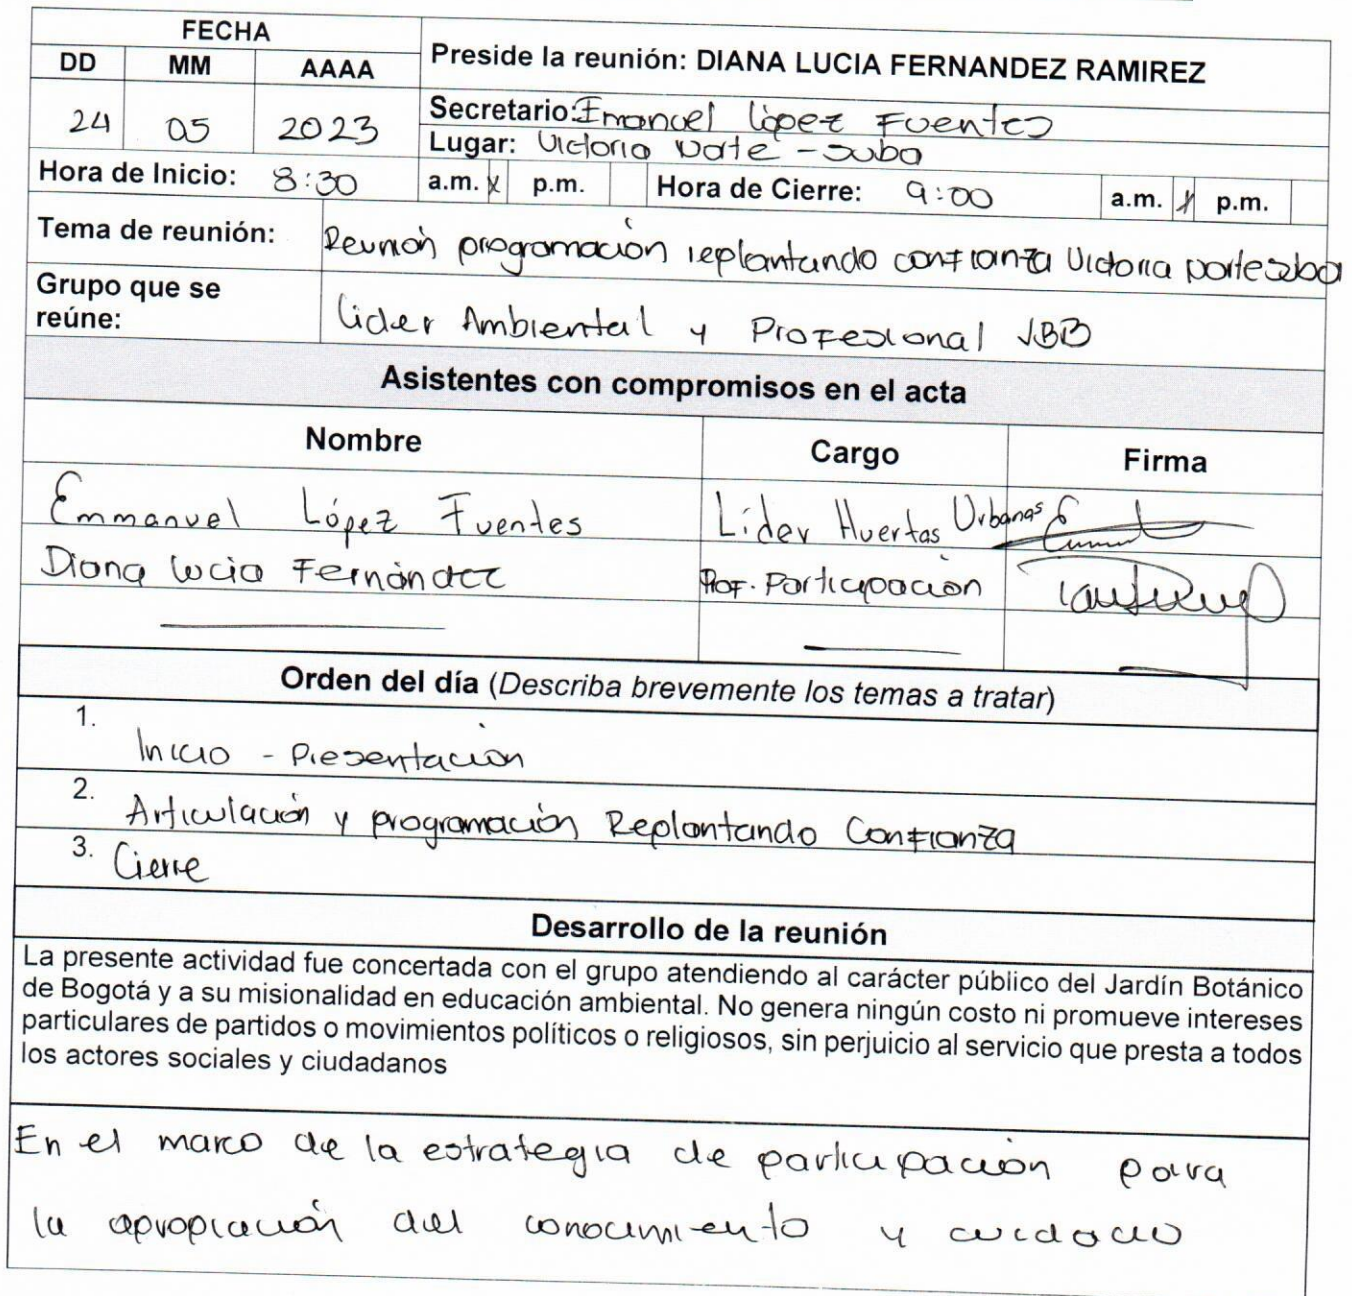 FECHA
Preside la reunión: DIANA LUCIA FERNANDEZ RAMIREZ
DD MM AAAA
24 05 2023
Secretario: Emanuel López Fuentes
Lugar: Victoria Norte - Suba
Hora de Inicio: 8:30 a.m. x p.m. Hora de Cierre: 9:00 a.m. x p.m.
Tema de reunión: Reunión programación replantando confianza Victoria norte suba
Grupo que se
reúne: Lider Ambiental y Profesional JBB
Asistentes con compromisos en el acta
Nombre Cargo Firma
Emmanuel López Fuentes Líder Huertas Urbanas
Diana Lucia Fernández Prof. Participación
Orden del día (Describa brevemente los temas a tratar)
1. Inicio - Presentación
2. Articulación y programación Replantando Confianza
3. Cierre
Desarrollo de la reunión
La presente actividad fue concertada con el grupo atendiendo al carácter público del Jardín Botánico
de Bogotá y a su misionalidad en educación ambiental. No genera ningún costo ni promueve intereses
particulares de partidos o movimientos políticos o religiosos, sin perjuicio al servicio que presta a todos
los actores sociales y ciudadanos
En el marco de la estrategia de participación para
la apropiación del conocimiento y cuidado